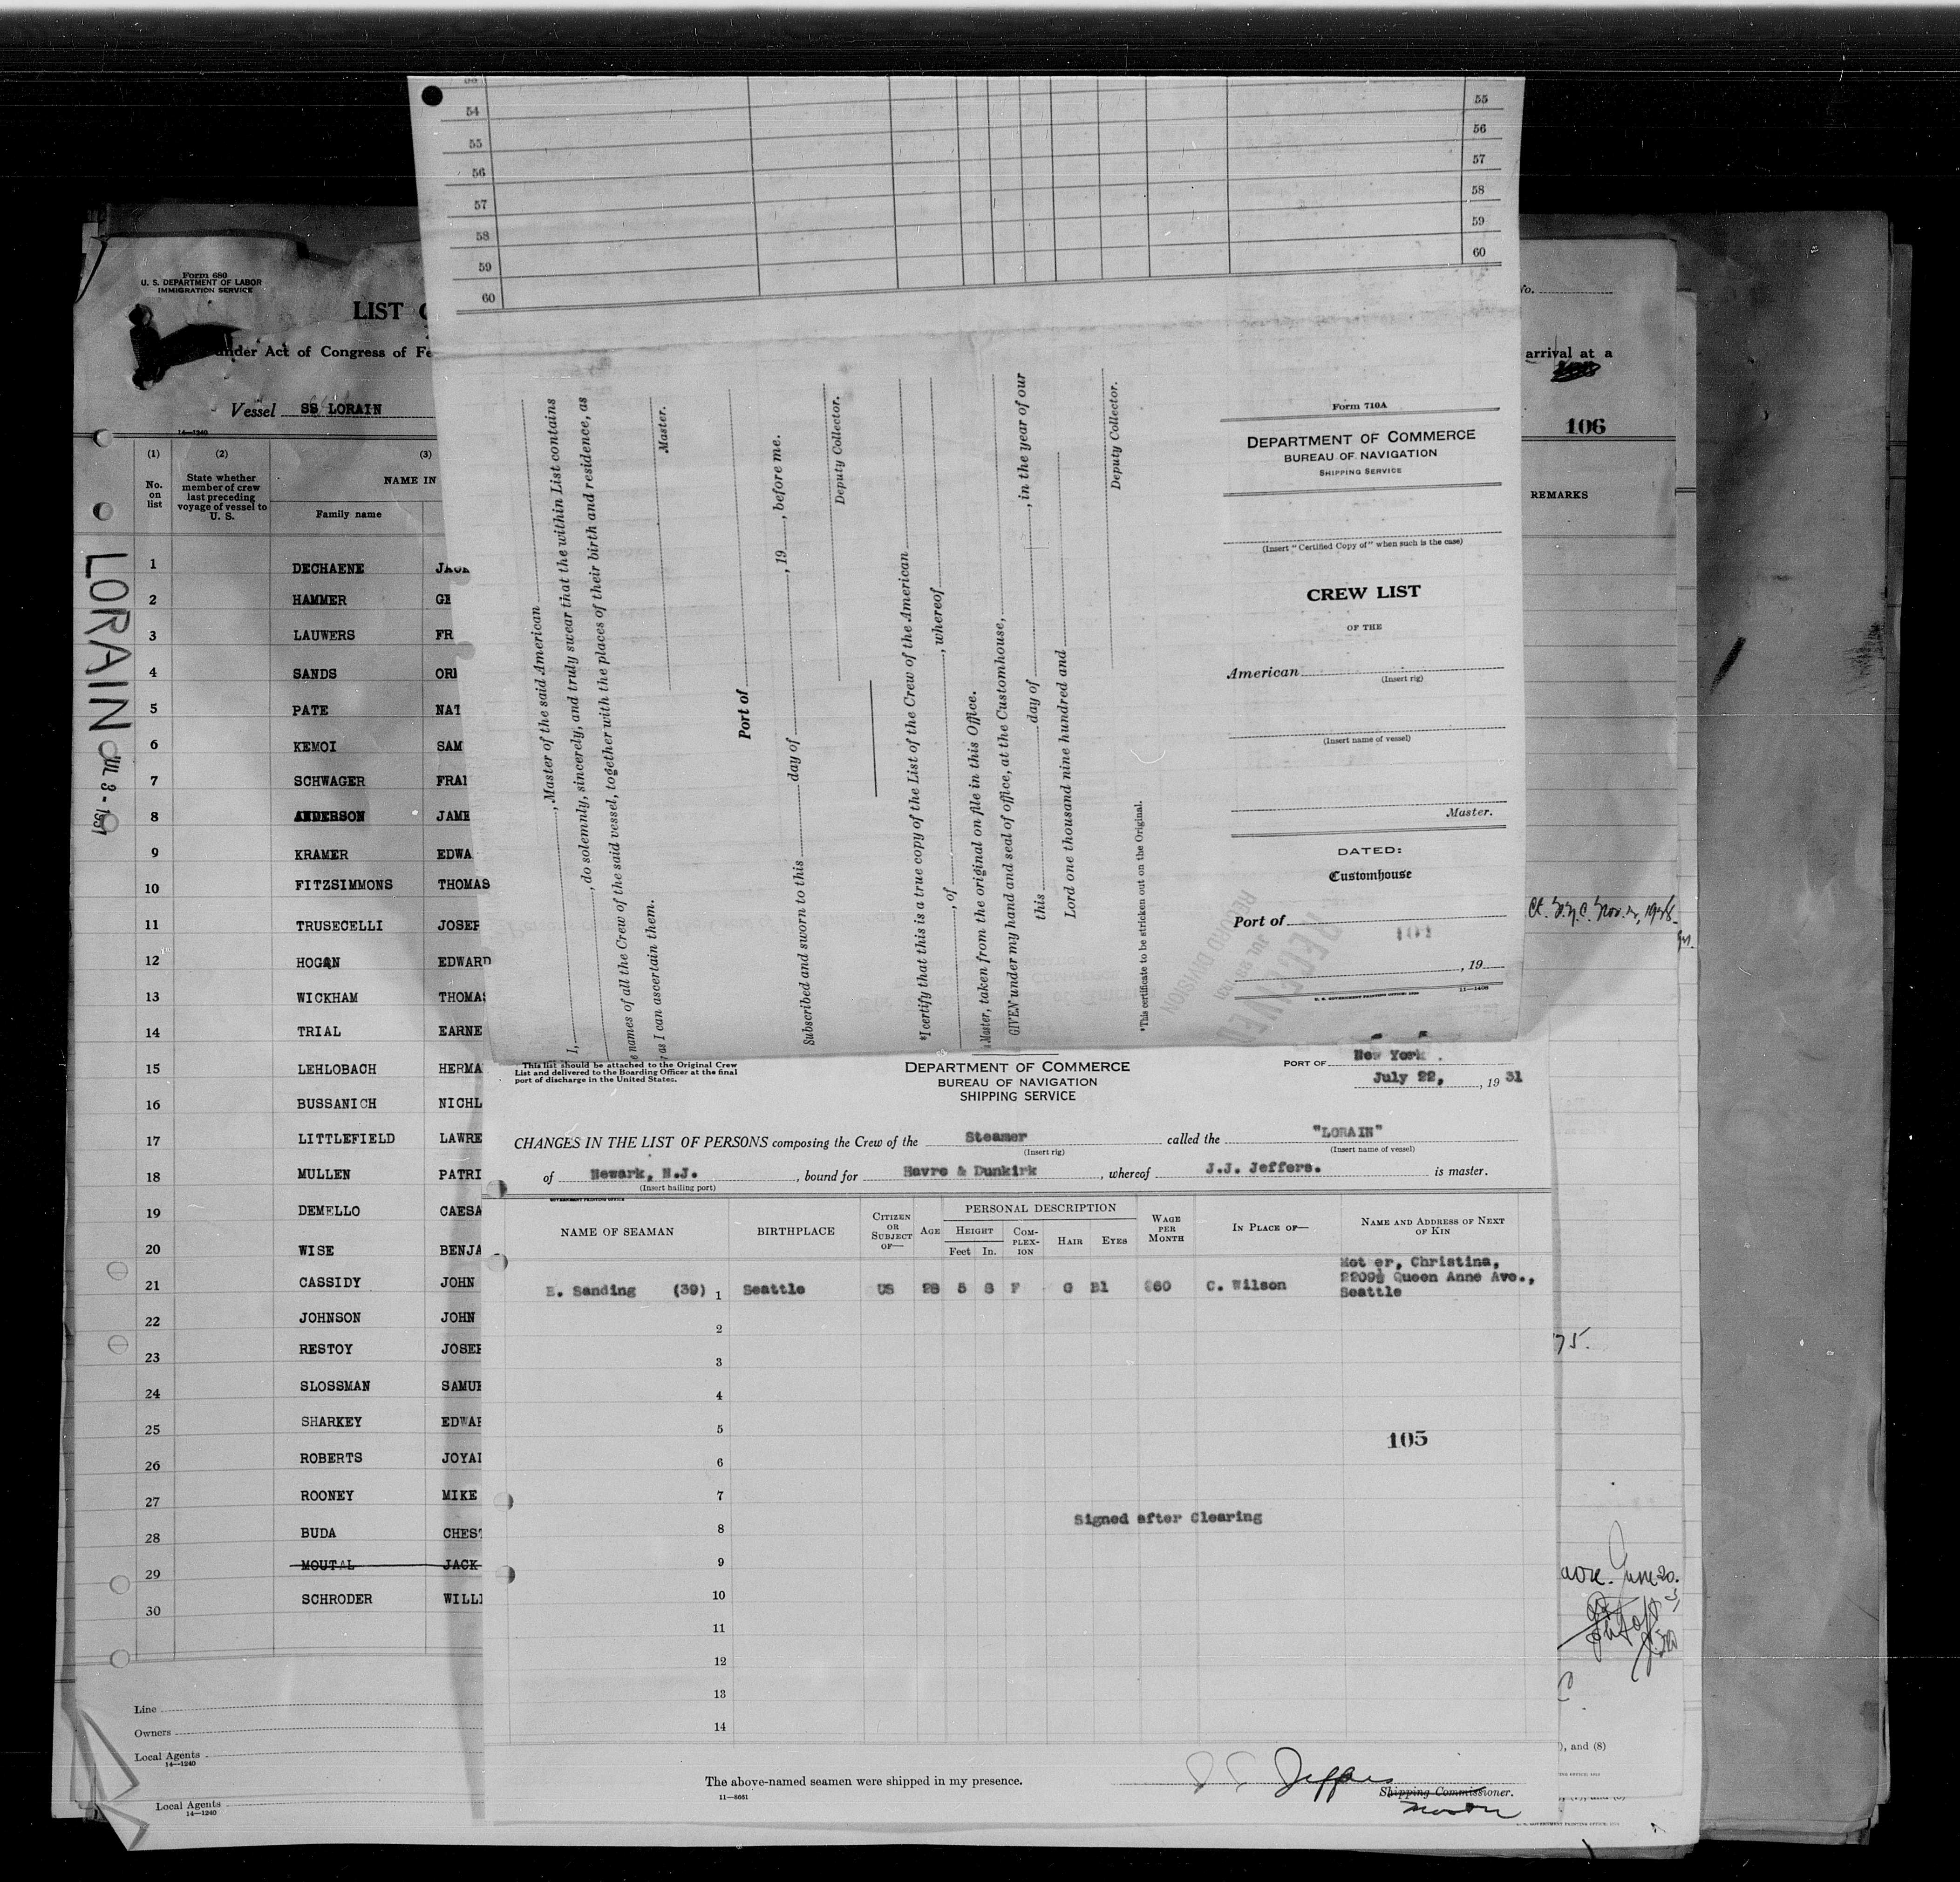 54
55
56
57
58
59
60
55
56
57
58
59
60
I,
, Master of the said American
, do solemnly, sincerely, and truly swear that the within List contains
names of all the Crew of the said vessel, together with the places of their birth and residence, as
as I can ascertain them.
Master.
Port of
Subscribed and sworn to this day of , 19 , before me.
Deputy Collector.
*I certify that this is a true copy of the List of the Crew of the American
, of , whereof
Master, taken from the original on file in this Office.
GIVEN under my hand and seal of office, at the Customhouse,
this day of , in the year of our
Lord one thousand nine hundred and
Deputy Collector.
*This certificate to be stricken out on the Original.
RECEIVED
RECORD DIVISION
Form 710A
DEPARTMENT OF COMMERCE
BUREAU OF NAVIGATION
SHIPPING SERVICE
(Insert "Certified Copy of" when such is the case)
CREW LIST
OF THE
American
(Insert rig)
(Insert name of vessel)
Master.
DATED:
Customhouse
Port of
, 19
U. S. GOVERNMENT PRINTING OFFICE
11—1406
Form 680
U. S. DEPARTMENT OF LABOR
IMMIGRATION SERVICE
LIST
under Act of Congress of Fe
arrival at a
Vessel SS LORAIN
14—1240
106
(1) (2) (3)
No. on list
State whether member of crew last preceding voyage of vessel to U. S.
NAME IN
Family name
REMARKS
LORAIN
JUL 3 - 1931
1 DECHAENE
2 HAMMER GE
3 LAUWERS FR
4 SANDS ORI
5 PATE NAT
6 KEMOI SAM
7 SCHWAGER FRAI
8 ANDERSON JAME
9 KRAMER EDWA
10 FITZSIMMONS THOMAS
11 TRUSECELLI JOSEP
12 HOGAN EDWARD
13 WICKHAM THOMAS
14 TRIAL EARNE
15 LEHLOBACH HERMA
16 BUSSANICH NICHL
17 LITTLEFIELD LAWRE
18 MULLEN PATRI
19 DEMELLO CAESA
20 WISE BENJA
21 CASSIDY JOHN
22 JOHNSON JOHN
23 RESTOY JOSEP
24 SLOSSMAN SAMUE
25 SHARKEY EDWAR
26 ROBERTS JOYAL
27 ROONEY MIKE
28 BUDA CHEST
29 MOUTAL JACK
30 SCHRODER WILLI
Line
Owners
Local Agents
14—1240
Local Agents
14—1240
75.
, and (8)
This list should be attached to the Original Crew
List and delivered to the Boarding Officer at the final
port of discharge in the United States.
DEPARTMENT OF COMMERCE
BUREAU OF NAVIGATION
SHIPPING SERVICE
PORT OF New York
July 22, , 19 31
CHANGES IN THE LIST OF PERSONS composing the Crew of the Steamer called the "LORAIN"
(Insert rig) (Insert name of vessel)
of Newark, N.J. , bound for Havre & Dunkirk , whereof J.J. Jeffers. is master.
(Insert hailing port)
GOVERNMENT PRINTING OFFICE
NAME OF SEAMAN
BIRTHPLACE
CITIZEN OR SUBJECT OF—
AGE
PERSONAL DESCRIPTION
HEIGHT
Feet In.
COM-PLEX-ION
HAIR
EYES
WAGE PER MONTH
IN PLACE OF—
NAME AND ADDRESS OF NEXT OF KIN
E. Sanding (39) 1 Seattle US 28 5 8 F G Bl $60 C. Wilson
Mother, Christina,
2209½ Queen Anne Ave.,
Seattle
2
3
4
5
6
7
8
9
10
11
12
13
14
105
Signed after Clearing
The above-named seamen were shipped in my presence.
11—8661
J J Jeffers
Shipping Commissioner.
Master